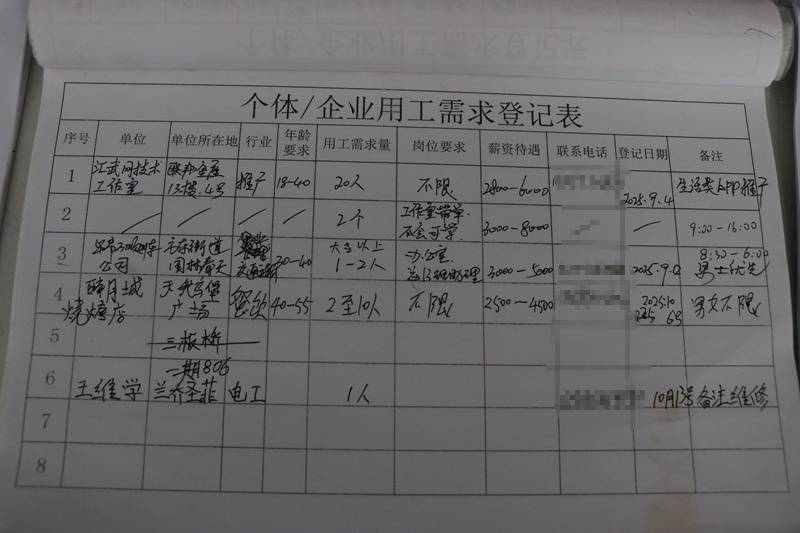 个体/企业用工需求登记表
序号 单位 单位所在地 行业 年龄要求 用工需求量 岗位要求 薪资待遇 联系电话 登记日期 备注
1 江武网技术工作室 13楼.4号 推广 18-40 20人 不限 2800-6000 2025.9.4 生活类APP推广
2 / / / / 2个 工作室带学.不会可学. 3000-8000 / / 9:00-16:00
3 公司 街道 20-40 大专以上 1-2人 办公室. 助理 3000-5000 2025.9. 8:30-6:00 男士优先
4 醉月城烧烤店 广场 餐饮 40-55 2至10人 不限 2500-4500 2025.10 男女不限
5 三板桥
6 王维学 二期806 兰乔圣菲 电工 1人 10月13号 备注维修
7
8